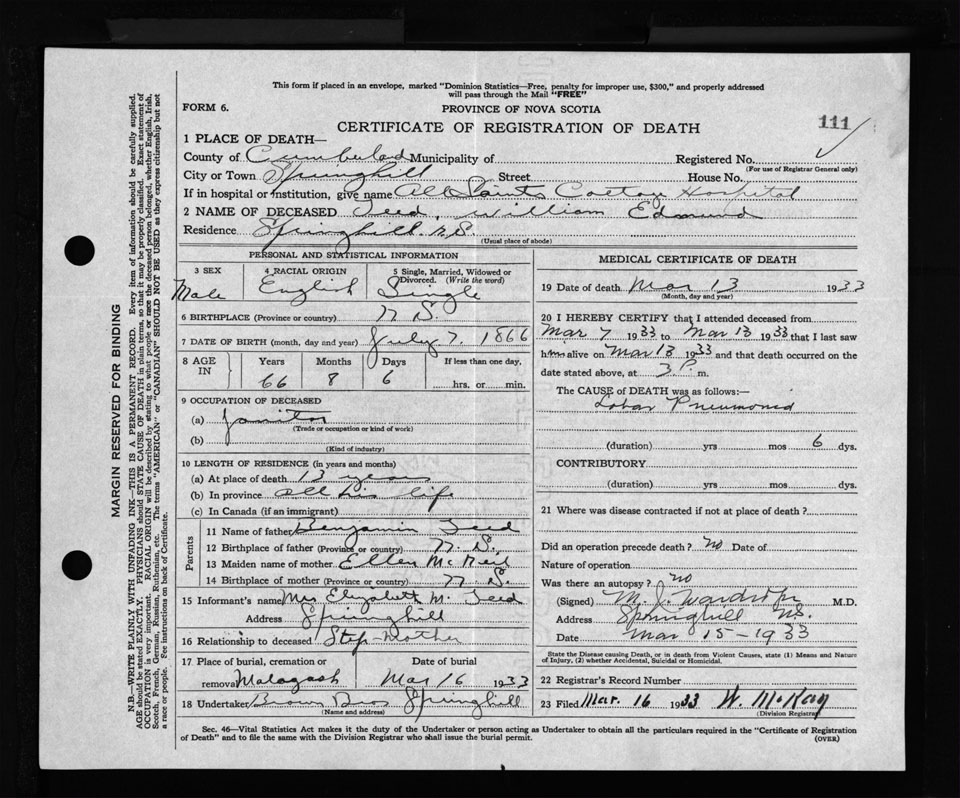 This form if placed in an envelope, marked "Dominion Statistics—Free, penalty for improper use, $300," and properly addressed
will pass through the Mail "FREE"
FORM 6.
PROVINCE OF NOVA SCOTIA
CERTIFICATE OF REGISTRATION OF DEATH
111
1 PLACE OF DEATH—
County of Cumberland Municipality of Registered No.
(For use of Registrar General only)
City or Town Springhill Street House No.
If in hospital or institution, give name All Saints Cottage Hospital
2 NAME OF DECEASED Teed, William Edmund
Residence Springhill. N.S.
(Usual place of abode)
PERSONAL AND STATISTICAL INFORMATION
3 SEX 4 RACIAL ORIGIN 5 Single, Married, Widowed or
Divorced. (Write the word)
Male English Single
6 BIRTHPLACE (Province or country) N S.
7 DATE OF BIRTH (month, day and year) July 7, 1866
8 AGE IN Years Months Days If less than one day,
66 8 6 hrs. or min.
9 OCCUPATION OF DECEASED
(a) Janitor
(Trade or occupation or kind of work)
(b)
(Kind of industry)
10 LENGTH OF RESIDENCE (in years and months)
(a) At place of death 13 years
(b) In province all his life
(c) In Canada (if an immigrant)
Parents
11 Name of father Benjamin Teed
12 Birthplace of father (Province or country) N. S.
13 Maiden name of mother Ellen McNeil
14 Birthplace of mother (Province or country) N S.
15 Informant's name Mrs Elizabeth M. Teed
Address Springhill
16 Relationship to deceased Step-Mother
17 Place of burial, cremation or Date of burial
removal Malagash Mar 16 1933
18 Undertaker Brown Bros Springhill
(Name and address)
MEDICAL CERTIFICATE OF DEATH
19 Date of death Mar 13 1933
(Month, day and year)
20 I HEREBY CERTIFY that I attended deceased from
Mar 7 1933 to Mar 13 1933 that I last saw
him alive on Mar 13 1933 and that death occurred on the
date stated above, at 3 P. m.
The CAUSE of DEATH was as follows:—
Lobar Pneumonia
(duration) yrs mos 6 dys.
CONTRIBUTORY
(duration) yrs mos dys.
21 Where was disease contracted if not at place of death?
Did an operation precede death? no Date of
Nature of operation
Was there an autopsy? no
(Signed) M. J. Wardrope M.D.
Address Springhill NS.
Date Mar 15-1933
State the Disease causing Death, or in death from Violent Causes, state (1) Means and Nature
of Injury, (2) whether Accidental, Suicidal or Homicidal.
22 Registrar's Record Number
23 Filed Mar. 16 1933 W. McKay
(Division Registrar)
Sec. 46—Vital Statistics Act makes it the duty of the Undertaker or person acting as Undertaker to obtain all the particulars required in the "Certificate of Registration
of Death" and to file the same with the Division Registrar who shall issue the burial permit.
(OVER)
MARGIN RESERVED FOR BINDING
N.B.—WRITE PLAINLY WITH UNFADING INK—THIS IS A PERMANENT RECORD. Every item of information should be carefully supplied.
AGE should be stated EXACTLY. PHYSICIANS should STATE CAUSE OF DEATH in plain terms, so that it may be properly classified. Exact statement of
OCCUPATION is very important. RACIAL ORIGIN will be described by stating to what people or race the deceased person belonged, whether English, Irish,
Scotch, French, German, Russian, Ruthenian, etc. The terms "AMERICAN" or "CANADIAN" SHOULD NOT BE USED as they express citizenship but not
a race or people. See instructions on back of Certificate.